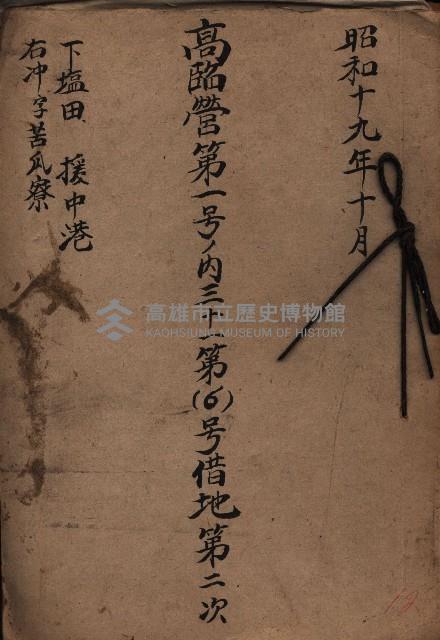 昭和十九年十月
高臨營第一号ノ内三ノ一第(6)号借地第二次
下塩田 援中港
右冲字苦瓜寮
高雄市立歷史博物館
KAOHSIUNG MUSEUM OF HISTORY